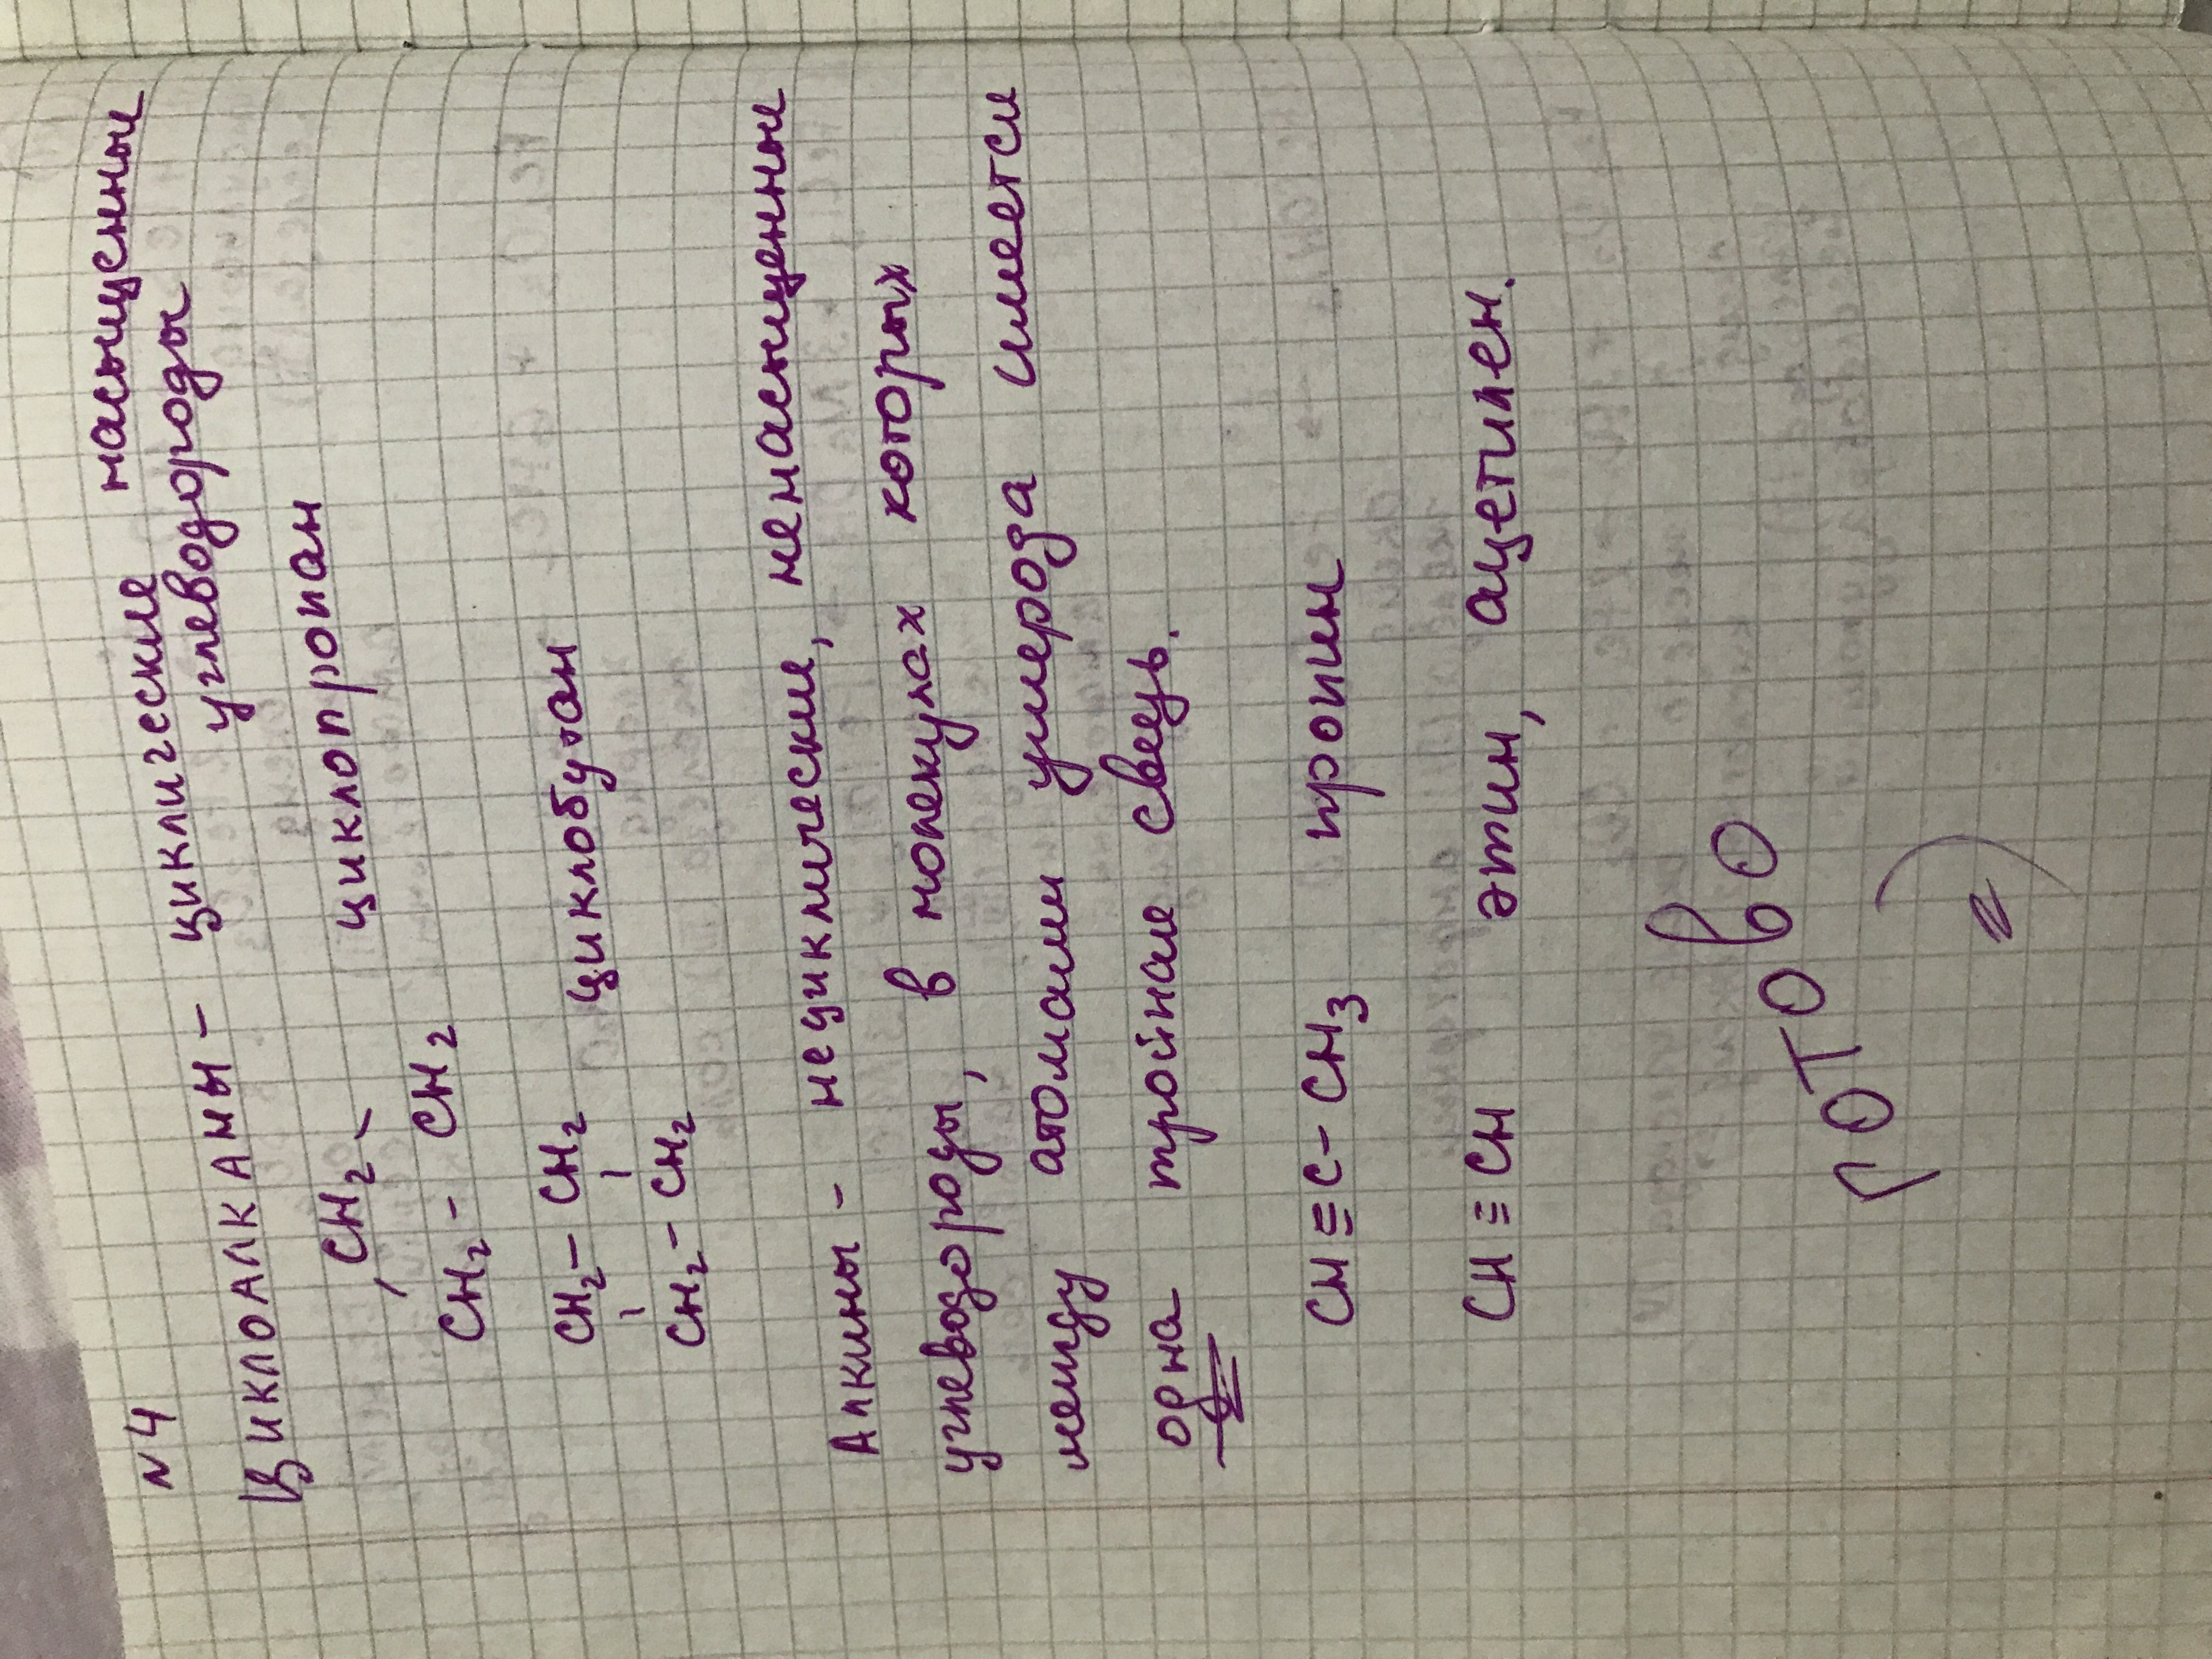 N4
Циклоалканы - циклические насыщенные
углеводороды
CH2
CH2 - CH2 циклопропан
CH2 - CH2 циклобутан
CH2 - CH2
Алкины - нециклические, ненасыщенные
углеводороды, в молекулах которых
между атомами углерода имеется
одна тройная связь.
CH ≡ C - CH3 пропин
CH ≡ CH этин, ацетилен.
готово
=)